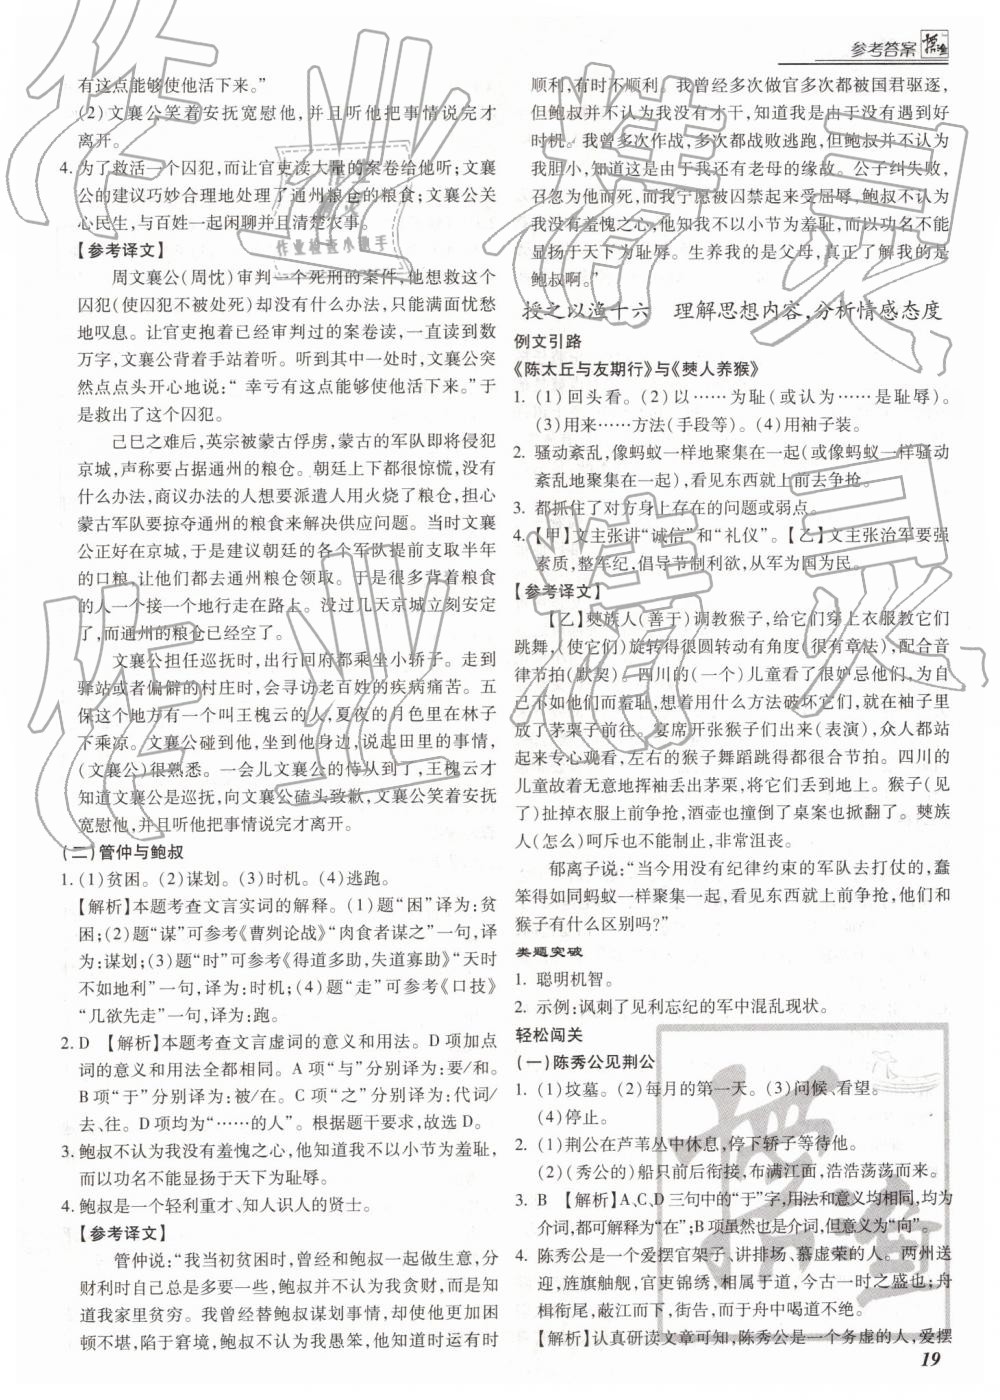 参考答案
有这点能够使他活下来。”
(2)文襄公笑着安抚宽慰他，并且听他把事情说完才
离开。
4. 为了救活一个囚犯,而让官吏读大量的案卷给他听;文襄
公的建议巧妙合理地处理了通州粮仓的粮食;文襄公关
心民生,与百姓一起闲聊并且清楚农事。
【参考译文】
周文襄公(周忱)审判一个死刑的案件,他想救这个
囚犯(使囚犯不被处死)却没有什么办法,只能满面忧愁
地叹息。让官吏抱着已经审判过的案卷读,一直读到数
万字,文襄公背着手站着听。听到其中一处时,文襄公突
然点点头开心地说:“幸亏有这点能够使他活下来。”于
是救出了这个囚犯。
己巳之难后,英宗被蒙古俘虏,蒙古的军队即将侵犯
京城,声称要占据通州的粮仓。朝廷上下都很惊慌,没有
什么办法,商议办法的人想要派遣人用火烧了粮仓,担心
蒙古军队要掠夺通州的粮食来解决供应问题。当时文襄
公正好在京城,于是建议朝廷的各个军队提前支取半年
的口粮,让他们都去通州粮仓领取。于是很多背着粮食
的人一个接一个地行走在路上。没过几天京城立刻安定
了,而通州的粮仓已经空了。
文襄公担任巡抚时,出行回府都乘坐小轿子。走到
驿站或者偏僻的村庄时,会寻访老百姓的疾病痛苦。五
保这个地方有一个叫王槐云的人,夏夜的月色里在林子
下乘凉。文襄公碰到他,坐到他身边,说起田里的事情,
(文襄公)很熟悉。一会儿文襄公的侍从到了,王槐云才
知道文襄公是巡抚,向文襄公磕头致歉,文襄公笑着安抚
宽慰他,并且听他把事情说完才离开。
(二)管仲与鲍叔
1. (1)贫困。(2)谋划。(3)时机。(4)逃跑。
【解析】本题考查文言实词的解释。(1)题“困”译为:贫
困;(2)题“谋”可参考《曹刿论战》“肉食者谋之”一句,译
为:谋划;(3)题“时”可参考《得道多助,失道寡助》“天时
不如地利”一句,译为:时机;(4)题“走”可参考《口技》
“几欲先走”一句,译为:跑。
2. D 【解析】本题考查文言虚词的意义和用法。D项加点
词的意义和用法全都相同。A项“与”分别译为:要/和。
B项“于”分别译为:被/在。C项“之”分别译为:代词/
去/往。D项均为“……的人”。根据题干要求,故选D。
3. 鲍叔不认为我没有羞愧之心,他知道我不以小节为羞耻,
而以功名不能显扬于天下为耻辱。
4. 鲍叔是一个轻利重才、知人识人的贤士。
【参考译文】
管仲说:“我当初贫困时,曾经和鲍叔一起做生意,分
财利时自己总是多要一些,鲍叔并不认为我贪财,而是知
道我家里贫穷。我曾经替鲍叔谋划事情,却使他更加困
顿不堪,陷于窘境,鲍叔不认为我愚笨,他知道时运有时
顺利，有时不顺利。我曾经多次做官多次都被国君驱逐，
但鲍叔并不认为我没有才干,知道我是由于没有遇到好
时机。我曾多次作战,多次都战败逃跑,但鲍叔并不认为
我胆小,知道这是由于我还有老母的缘故。公子纠失败,
召忽为他而死,而我宁愿被囚禁起来受屈辱,鲍叔不认为
我没有羞愧之心,他知道我不以小节为羞耻,而以功名不能
显扬于天下为耻辱。生养我的是父母,真正了解我的是
鲍叔啊。”
授之以渔十六　理解思想内容,分析情感态度
例文引路
《陈太丘与友期行》与《僰人养猴》
1. (1)回头看。(2)以……为耻(或认为……是耻辱)。
(3)用来……方法(手段等)。(4)用袖子装。
2. 骚动紊乱,像蚂蚁一样地聚集在一起(或骚动
紊乱地聚集在一起),看见东西就上前去争抢。
3. 都抓住了对方身上存在的问题或弱点。
4. 【甲】文主张讲“诚信”和“礼仪”。【乙】文主张治军要强
素质,整军纪,倡导节制利欲,从军为国为民。
【参考译文】
【乙】僰族人(善于)调教猴子,给它们穿上衣服教它们
跳舞,(使它们)旋转得很圆转动有角度(很有章法),配合音
律节拍(默契)。四川的(一个)儿童看了很妒忌他们,为自
己不如他们而羞耻,想着用什么方法破坏它们,就在袖子里
放了茅栗子前往。宴席开张猴子们出来(表演),众人都站
起来专心观看,左右的猴子舞蹈跳得都很合节拍。四川的
儿童故着无意地挥袖丢出茅栗,将它们丢到地上。猴子(见
了)扯掉衣服上前争抢,酒壶也撞倒了桌案也掀翻了。僰族
人(怎么)呵斥也不能制止,非常沮丧。
郁离子说:“当今用没有纪律约束的军队去打仗的,蠢
笨得如同蚂蚁一样聚集一起,看见东西就上前争抢,他们和
猴子有什么区别吗?”
类题突破
1. 聪明机智。
2. 示例:讽刺了见利忘纪的军中混乱现状。
轻松闯关
(一)陈秀公见荆公
1. (1)坟墓。(2)每月的第一天。(3)问候、看望。
(4)停止。
2. (1)荆公在芦苇丛中休息,停下轿子等待他。
(2)(秀公的)船只前后衔接,布满江面,浩浩荡荡而来。
3. B 【解析】A、C、D三句中的“于”字,用法和意义均相同,均为
介词,都可解释为“在”;B项虽然也是介词,但意义为“向”。
4. 陈秀公是一个爱摆官架子、讲排场、慕虚荣的人。两州送
迎,旌旗舳舰,官吏锦绣,相属于道,今古一时之盛也;舟
楫衔尾,蔽江而下,街告,而于舟中喝道不绝。
【解析】认真研读文章可知,陈秀公是一个务虚的人,爱摆
19